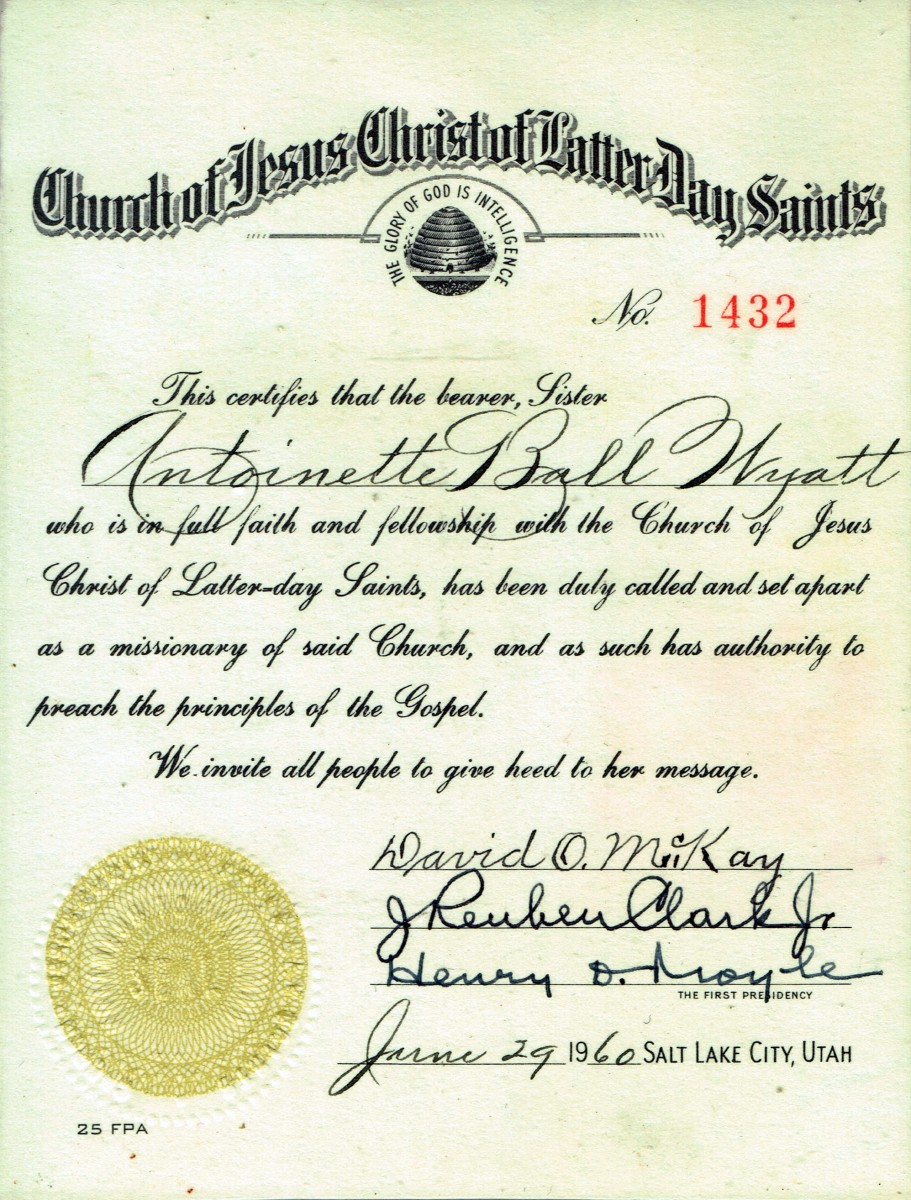 Church of Jesus Christ of Latter Day Saints
THE GLORY OF GOD IS INTELLIGENCE
No. 1432
This certifies that the bearer, Sister
Antoinette Ball Wyatt
who is in full faith and fellowship with the Church of Jesus
Christ of Latter=day Saints, has been duly called and set apart
as a missionary of said Church, and as such has authority to
preach the principles of the Gospel.
We invite all people to give heed to her message.
David O. McKay
J Reuben Clark Jr
Henry D. Moyle
THE FIRST PRESIDENCY
June 29 1960 SALT LAKE CITY, UTAH
25 FPA